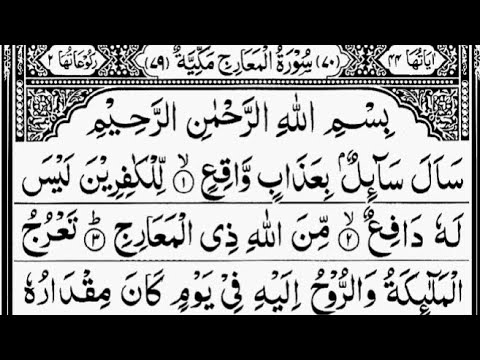 اٰيَاتُهَا ٤٤ (٧٠) سُوْرَةُ الْمَعَارِجِ مَكِّيَّةٌ (٧٩) رُكُوْعَاتُهَا ٢
بِسْمِ اللهِ الرَّحْمٰنِ الرَّحِيْمِ
سَاَلَ سَآئِلٌۢ بِعَذَابٍ وَّاقِعٍ ۙ﴿١﴾ لِّلْكٰفِرِيْنَ لَيْسَ
لَهٗ دَافِعٌ ۙ﴿٢﴾ مِّنَ اللهِ ذِي الْمَعَارِجِ ؕ﴿٣﴾ تَعْرُجُ
الْمَلٰٓئِكَةُ وَالرُّوْحُ اِلَيْهِ فِيْ يَوْمٍ كَانَ مِقْدَارُهٗ